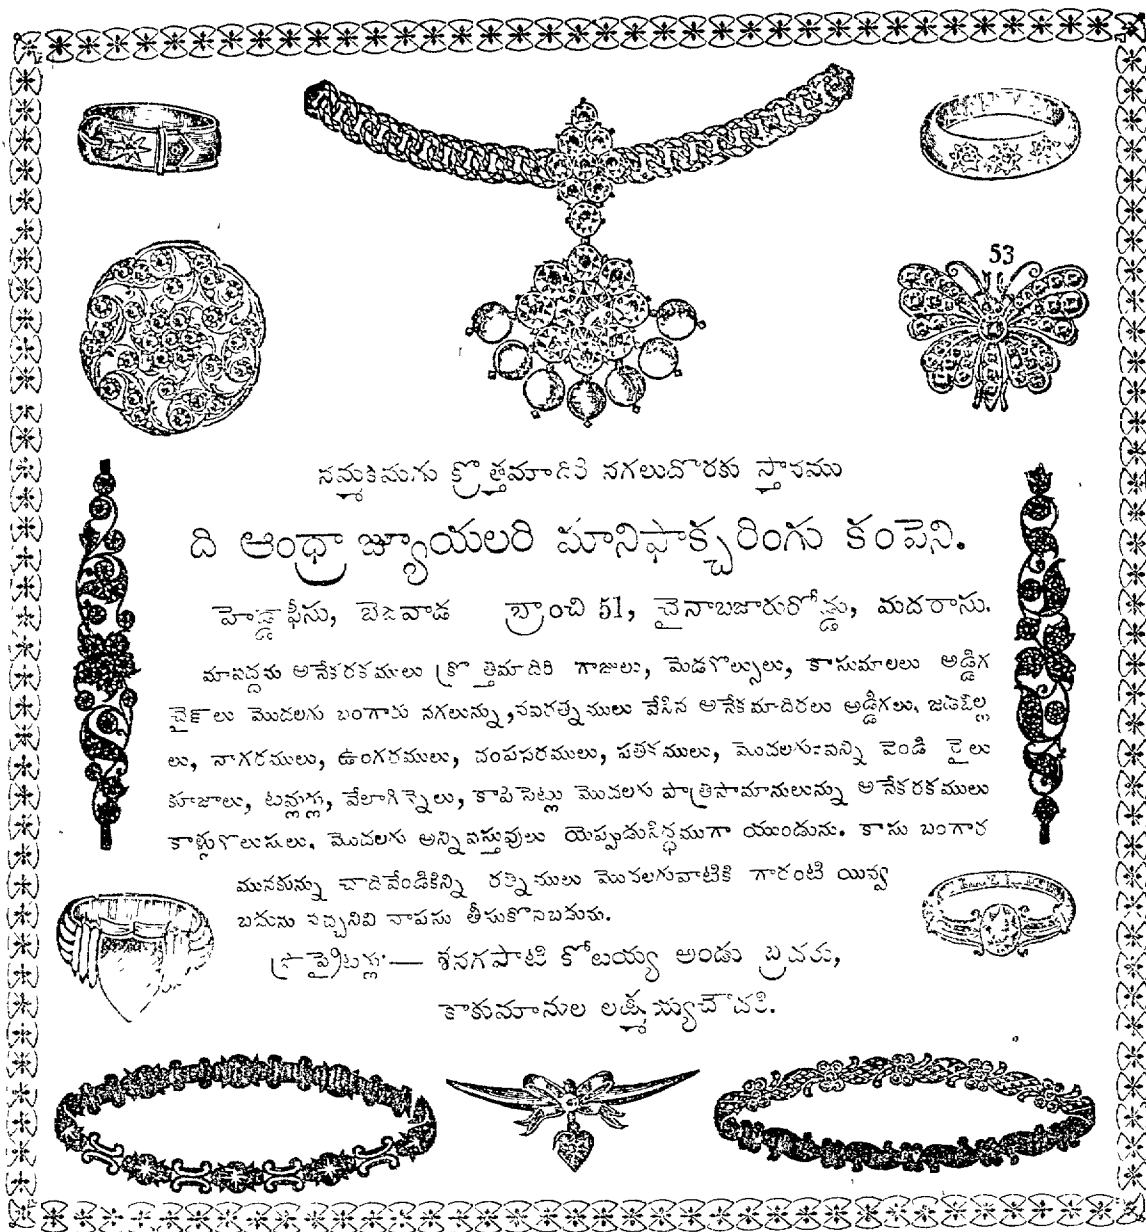 53
నమ్మకమగు క్రొత్తమాదిరి నగలుదొరకు స్తానము
ది ఆంధ్రా జ్యూయలరి మానిఫాక్చరింగు కంపెని.
హెడ్డాఫీసు, బెజవాడ బ్రాంచి 51, చైనాబజారురోడ్డు, మదరాసు.
మావద్దను అనేకరకములు క్రొత్తమాదిరి గాజులు, మెడగొల్సులు, కాసుమాలలు అడ్డిగ
చైకాలు మొదలగు బంగారు నగలున్ను, నవరత్నములు వేసిన అనేకమాదిరలు అడ్డిగలు, జడబిల్ల
లు, నాగరములు, ఉంగరములు, చంపసరములు, పతకములు, మొదలగునవన్ని వెండి రైలు
కూజాలు, టమ్లర్లు, వేలాగిన్నెలు, కాపిసెట్లు మొదలగు పాత్రసామానులున్ను అనేకరకములు
కాళ్లగొలుసులు, మొదలగు అన్నివస్తువులు యెప్పుడుసిద్ధముగా యుండును. కాసు బంగార
మునకున్ను చాదివేండికిన్ని రత్నములు మొదలగువాటికి గారంటి యివ్వ
బడును నచ్చనివి వాపసు తీసుకొనబడును.
ప్రొప్రైటర్లు— శనగపాటి కోటయ్య అండు బ్రదరు,
కాకుమానుల లక్ష్మయ్యచౌదరి.